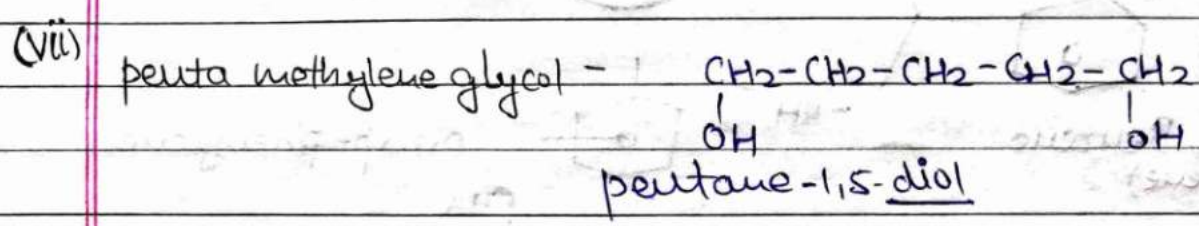 (vii) penta methylene glycol - CH2-CH2-CH2-CH2-CH2
OH OH
pentane-1,5-diol